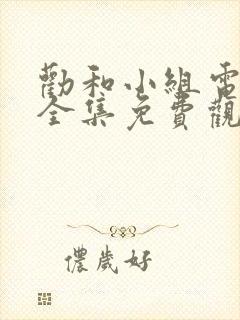 勸和小組電
全集免費觀
儂歲好